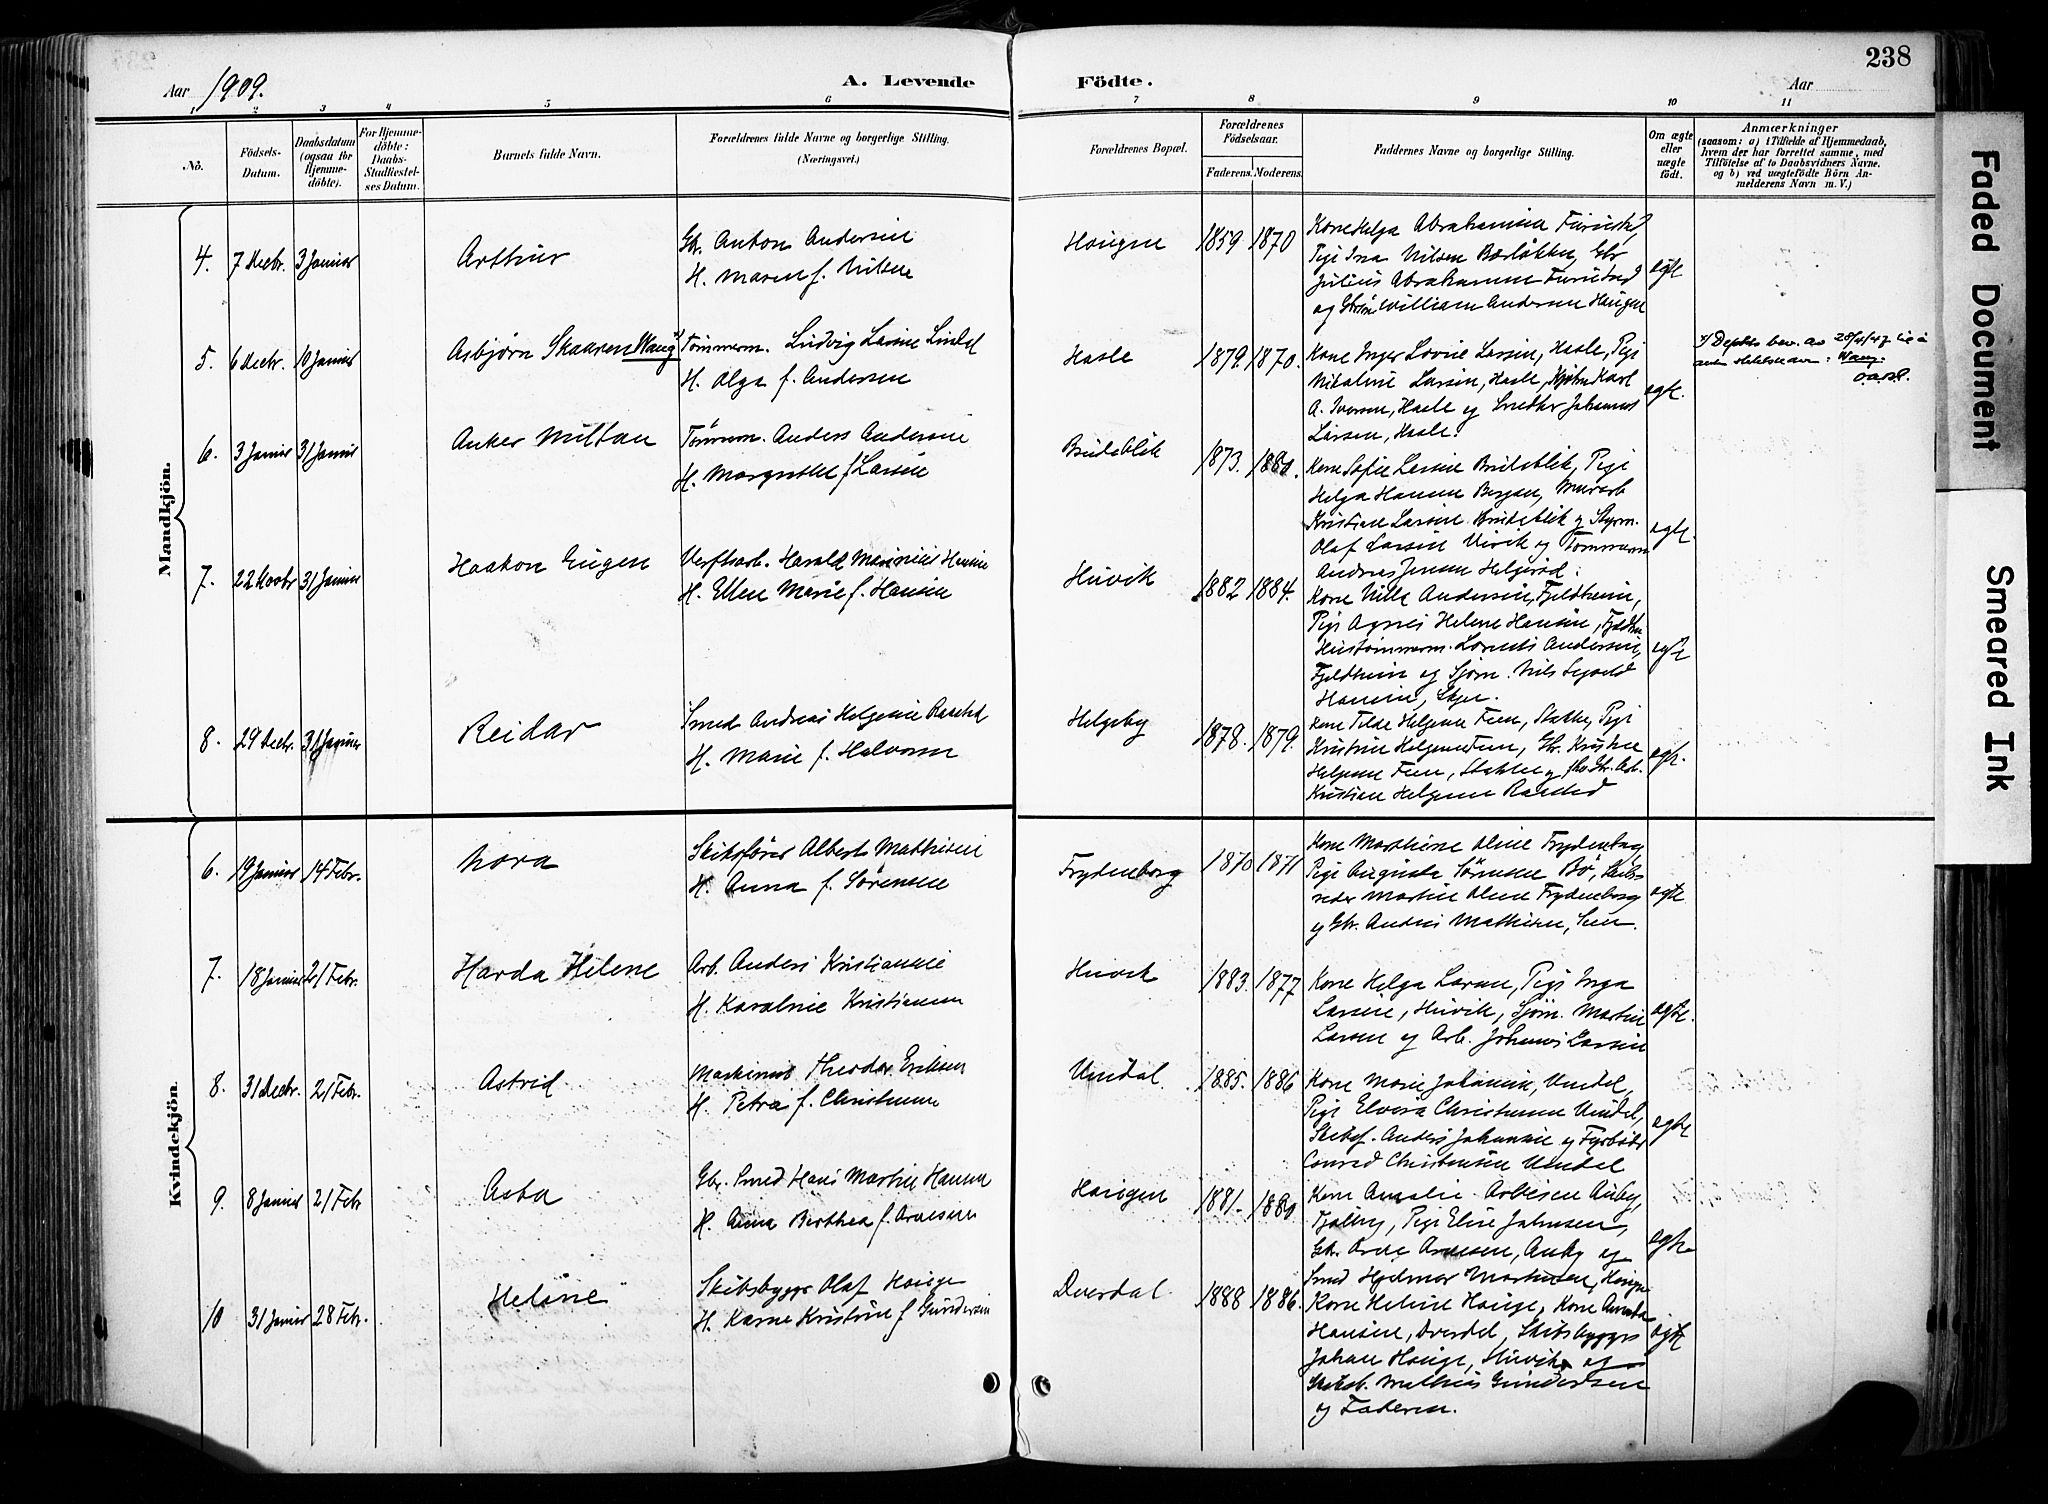 238
Aar 1909.
A. Levende
Födte.
Aar
1 2 3 4 5 6 7 8 9 10 11
No.
Födsels-
Datum.
Daabsdatum
(ogsaa for
Hjemme-
döbte).
For Hjemme-
döbte:
Daabs-
Stadfestel-
ses Datum.
Barnets fulde Navn.
Forældrenes fulde Navne og borgerlige Stilling.
(Næringsvei.)
Forældrenes Bopæl.
Forældrenes
Födselsaar.
Faderens. Moderens.
Faddernes Navne og borgerlige Stilling.
Om ægte
eller
uægte
födt.
Anmærkninger
(saasom: a) i Tilfælde af Hjemmedaab,
hvem der har forrettet samme, med
Tilföielse af to Daabsvidners Navne,
og b) ved uægtefödte Börn An-
melderens Navn m. V.)
Mandkjön.
4. 7 Decbr. 3 Januar
Arthur
Gbr. Anton Andersen
H. Maren f. Nilsen
Haugen
1859. 1870
Kone Helga Abrahamsen Furustad,
Pige Ina Nilsen Berløkken, Gbr
Julius Abrahamsen Furustad
og William Andersen Haugen
egte
5. 6 Decbr. 10 Januar
Asbjørn Skauren Waug
Tømmerm. Ludvig Larsen
H. Olga f. Andersen
Hasle
1879. 1870.
Kone Inger Lovise Larsen, Hasle, Pige
Nikoline Larsen, Hasle, Karl
A. Iversen, Hasle og Johannes
Larsen, Hasle.
egte.
Deptets bev. av 28/4/47
Waug.
6. 3 Januar 31 Januar
Anker Miltan
Tømmerm. Anders Andersen
H. Margrethe f. Larsen
Brudeblik
1873. 1880.
Kone Sofie Larsen Brudeblik, Pige
Helga Hansen Bergan, Murarb
Kristian Larsen Brudeblik og Styrm.
Olaf Larsen Vivik og Tømmerm
Andreas Jensen Helgerød.
egte.
7. 22 Novbr 31 Januar
Haakon Eugen
Verftsarb. Harald Marinius Hansen
H. Ellen Marie f. Hansen
Husvik
1882 1884.
Kone Andersen, Fjeldheim,
Pige Agnes Helene Hansen,
Hustømmerm. Andersen,
Fjeldheim og Sjøm. Nils
Hansen,
egte
8. 29 Decbr. 31 Januar
Reidar
Smed Andreas Helgesen Raastad
H. Marie f. Halvorsen
Helgeby
1878. 1879.
Kone Tilda Helgesen Feen, Stokke, Pige
Kristine Helgesen Feen, Gbr. Kristen
Helgesen Feen, Stokke og
Kristian Helgesen Raastad
egte.
Kvindekjön.
6. 19 Januar 14 Febr.
Nora
Skibsfører Albert Mathisen
H. Anna f. Sørensen
Frydenborg
1870 1871
Kone Marthine Olsen Frydenborg,
Pige Augusta Sørensen Bø, Skibs-
reder Martin Olsen Frydenborg
og Gbr. Anders Mathisen, Sem.
egte
7. 18 Januar 21 Febr.
Harda Helene
Arb. Anders Kristiansen
H. Karoline Kristiansen
Husvik
1883. 1877
Kone Helga Larsen, Pige Inga
Larsen, Husvik, Sjøm. Martin
Larsen og Arb. Johannes Larsen
egte.
8. 31 Decbr. 21 Febr.
Astrid
Maskinist Theodor Eriksen
H. Petra f. Christensen
Unndal.
1885. 1886
Kone Marie Johansen, Unndal,
Pige Elvira Christensen Unndal,
Skibsf. Anders Johansen og Fyrbøder
Conrad Christensen Unndal
egte
9. 8 Januar 21 Febr
Asta
Gbr. Smed Hans Martin Hansen
H. Anna Berthea f. Arnesen
Haugen
1881. 1880
Kone Amalie Arnesen Auby,
Pige Elise Johnsen,
Gbr. Arne Arnesen, Auby og
Smed Hjelmar Martinsen, Haugen
egte
10 31 Januar 28 Febr.
Helene
Skibsbygger Olaf Hauge
H. Karen Kristine f Gundersen
Dverdal.
1888 1886.
Kone Helene Hauge, Kone Amanda
Hansen, Dverdal, Skibsbygger
Johan Hauge, Husvik, og
Mathias Gundersen
og Faderen.
egte
Faded Document
Smeared Ink